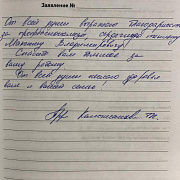 Заявление №
От всей души выражаю благодарность
за профессионализм, сердечную
Максиму Владимировичу
Спасибо вам большое за
вашу работу
От всей души желаю здоровья
вам и вашей семье